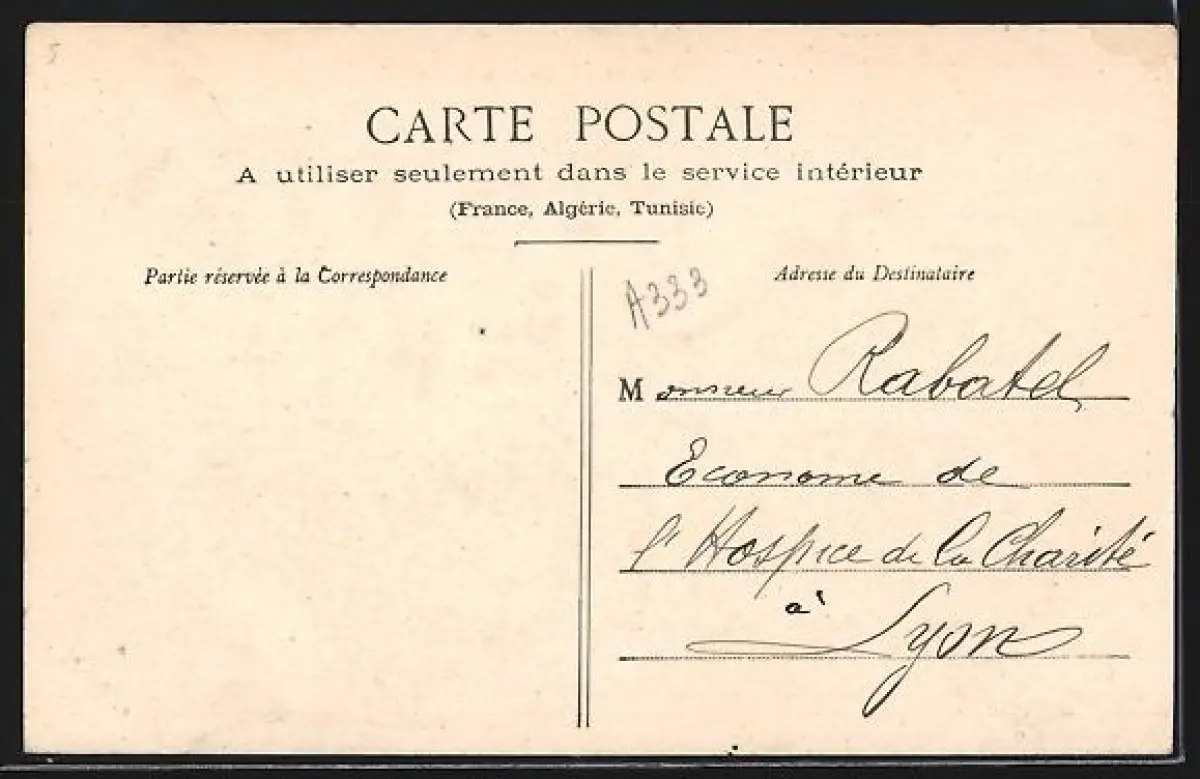 5
CARTE POSTALE
A utiliser seulement dans le service intérieur
(France, Algérie, Tunisie)
Partie réservée à la Correspondance
Adresse du Destinataire
A333
Monsieur Rabatel
Econome de
l'Hospice de la Charité
à Lyon